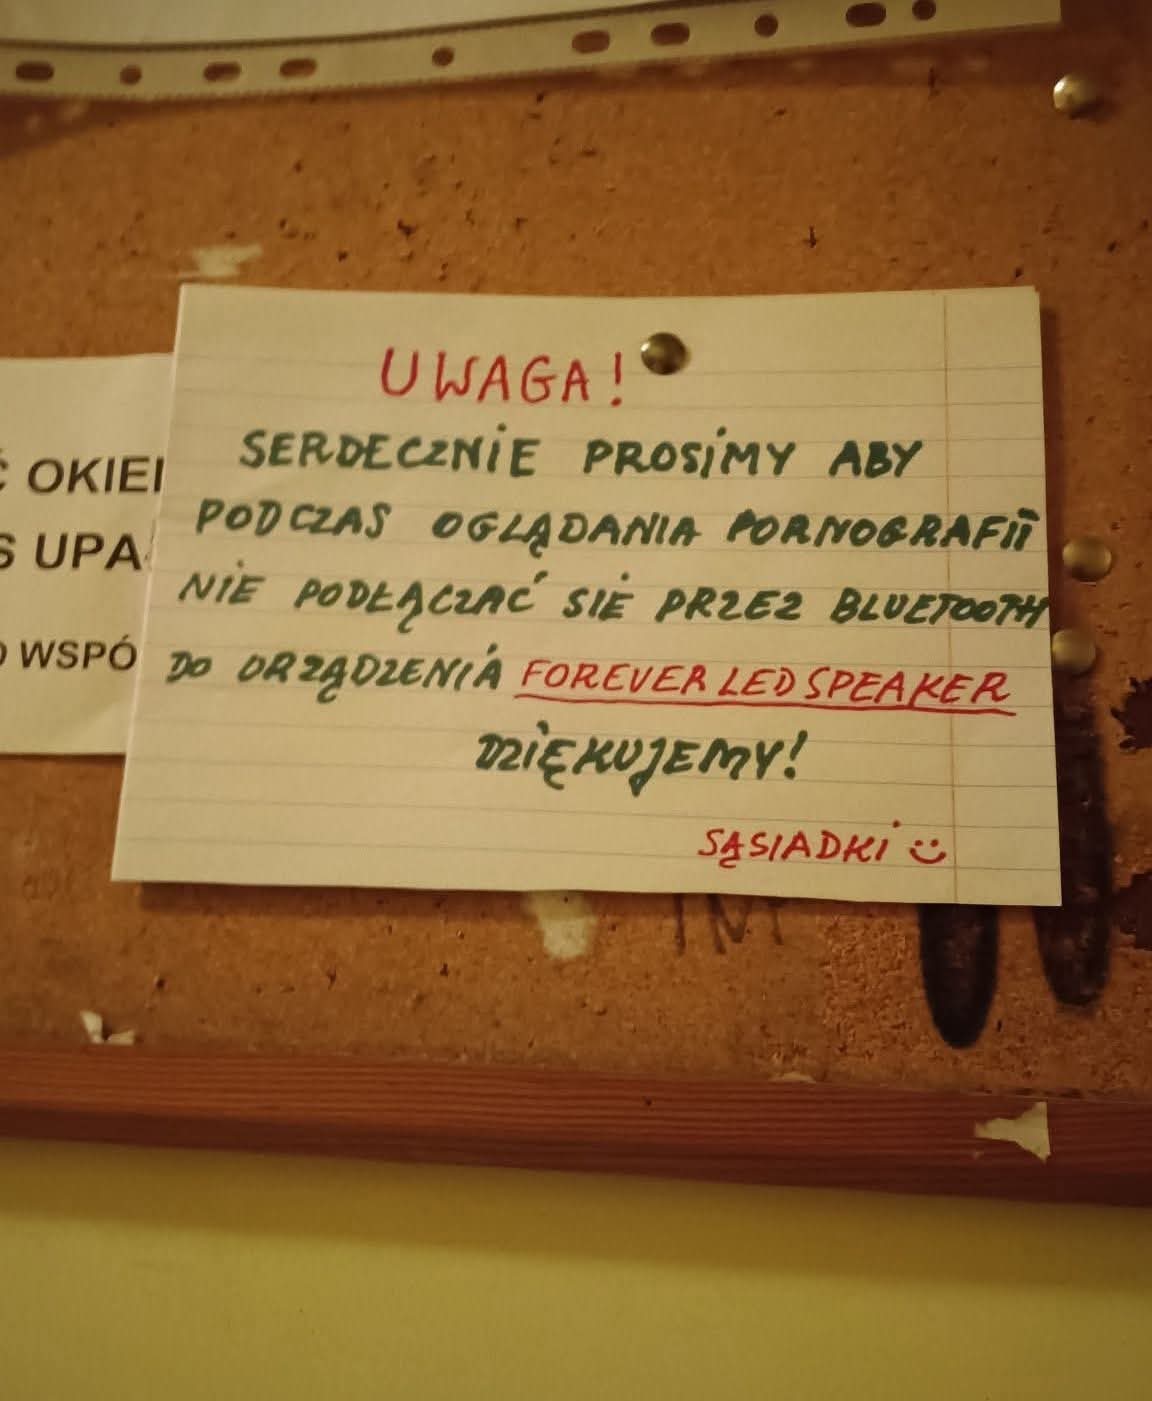 UWAGA!
SERDECZNIE PROSIMY ABY
PODCZAS OGLĄDANIA PORNOGRAFII
NIE PODŁĄCZAĆ SIĘ PRZEZ BLUETOOTH
DO URZĄDZENIA FOREVER LED SPEAKER
DZIĘKUJEMY!
SĄSIADKI :)
OKIE
S UPA
WSPÓ